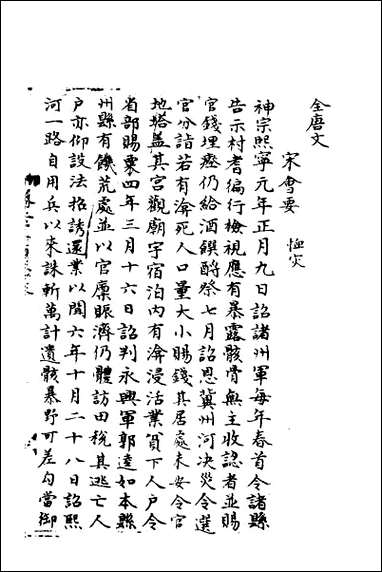 全唐文
宋會要 恤灾
神宗熙寧元年正月九日詔諸州軍每年春首令諸縣
告示村耆徧行檢視應有暴露骸骨無主收認者並賜
官錢埋瘞仍給酒饌酹祭七月詔恩冀州河決災令選
官分詣若有渰死人口量大小賜錢其居處未安令官
地搭蓋其宮觀廟宇宿泊內有渰浸活業貧下人戶令
省部賜粟四年三月十六日詔判永興軍郭逵如本縣
州縣有饑荒處並以官廩賑濟仍體訪田稅其逃亡人
戶亦仰設法招誘還業以聞六年十月二十八日詔熙
河一路自用兵以來誅斬萬計遺骸暴野可差勾當御